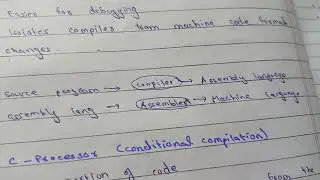 Easier for debugging
Isolates compiler from machine code format
changes.
source program → compiler → Assembly language
assembly lang → Assembler → Machine language
C - Processor (conditional compilation)
of code from the